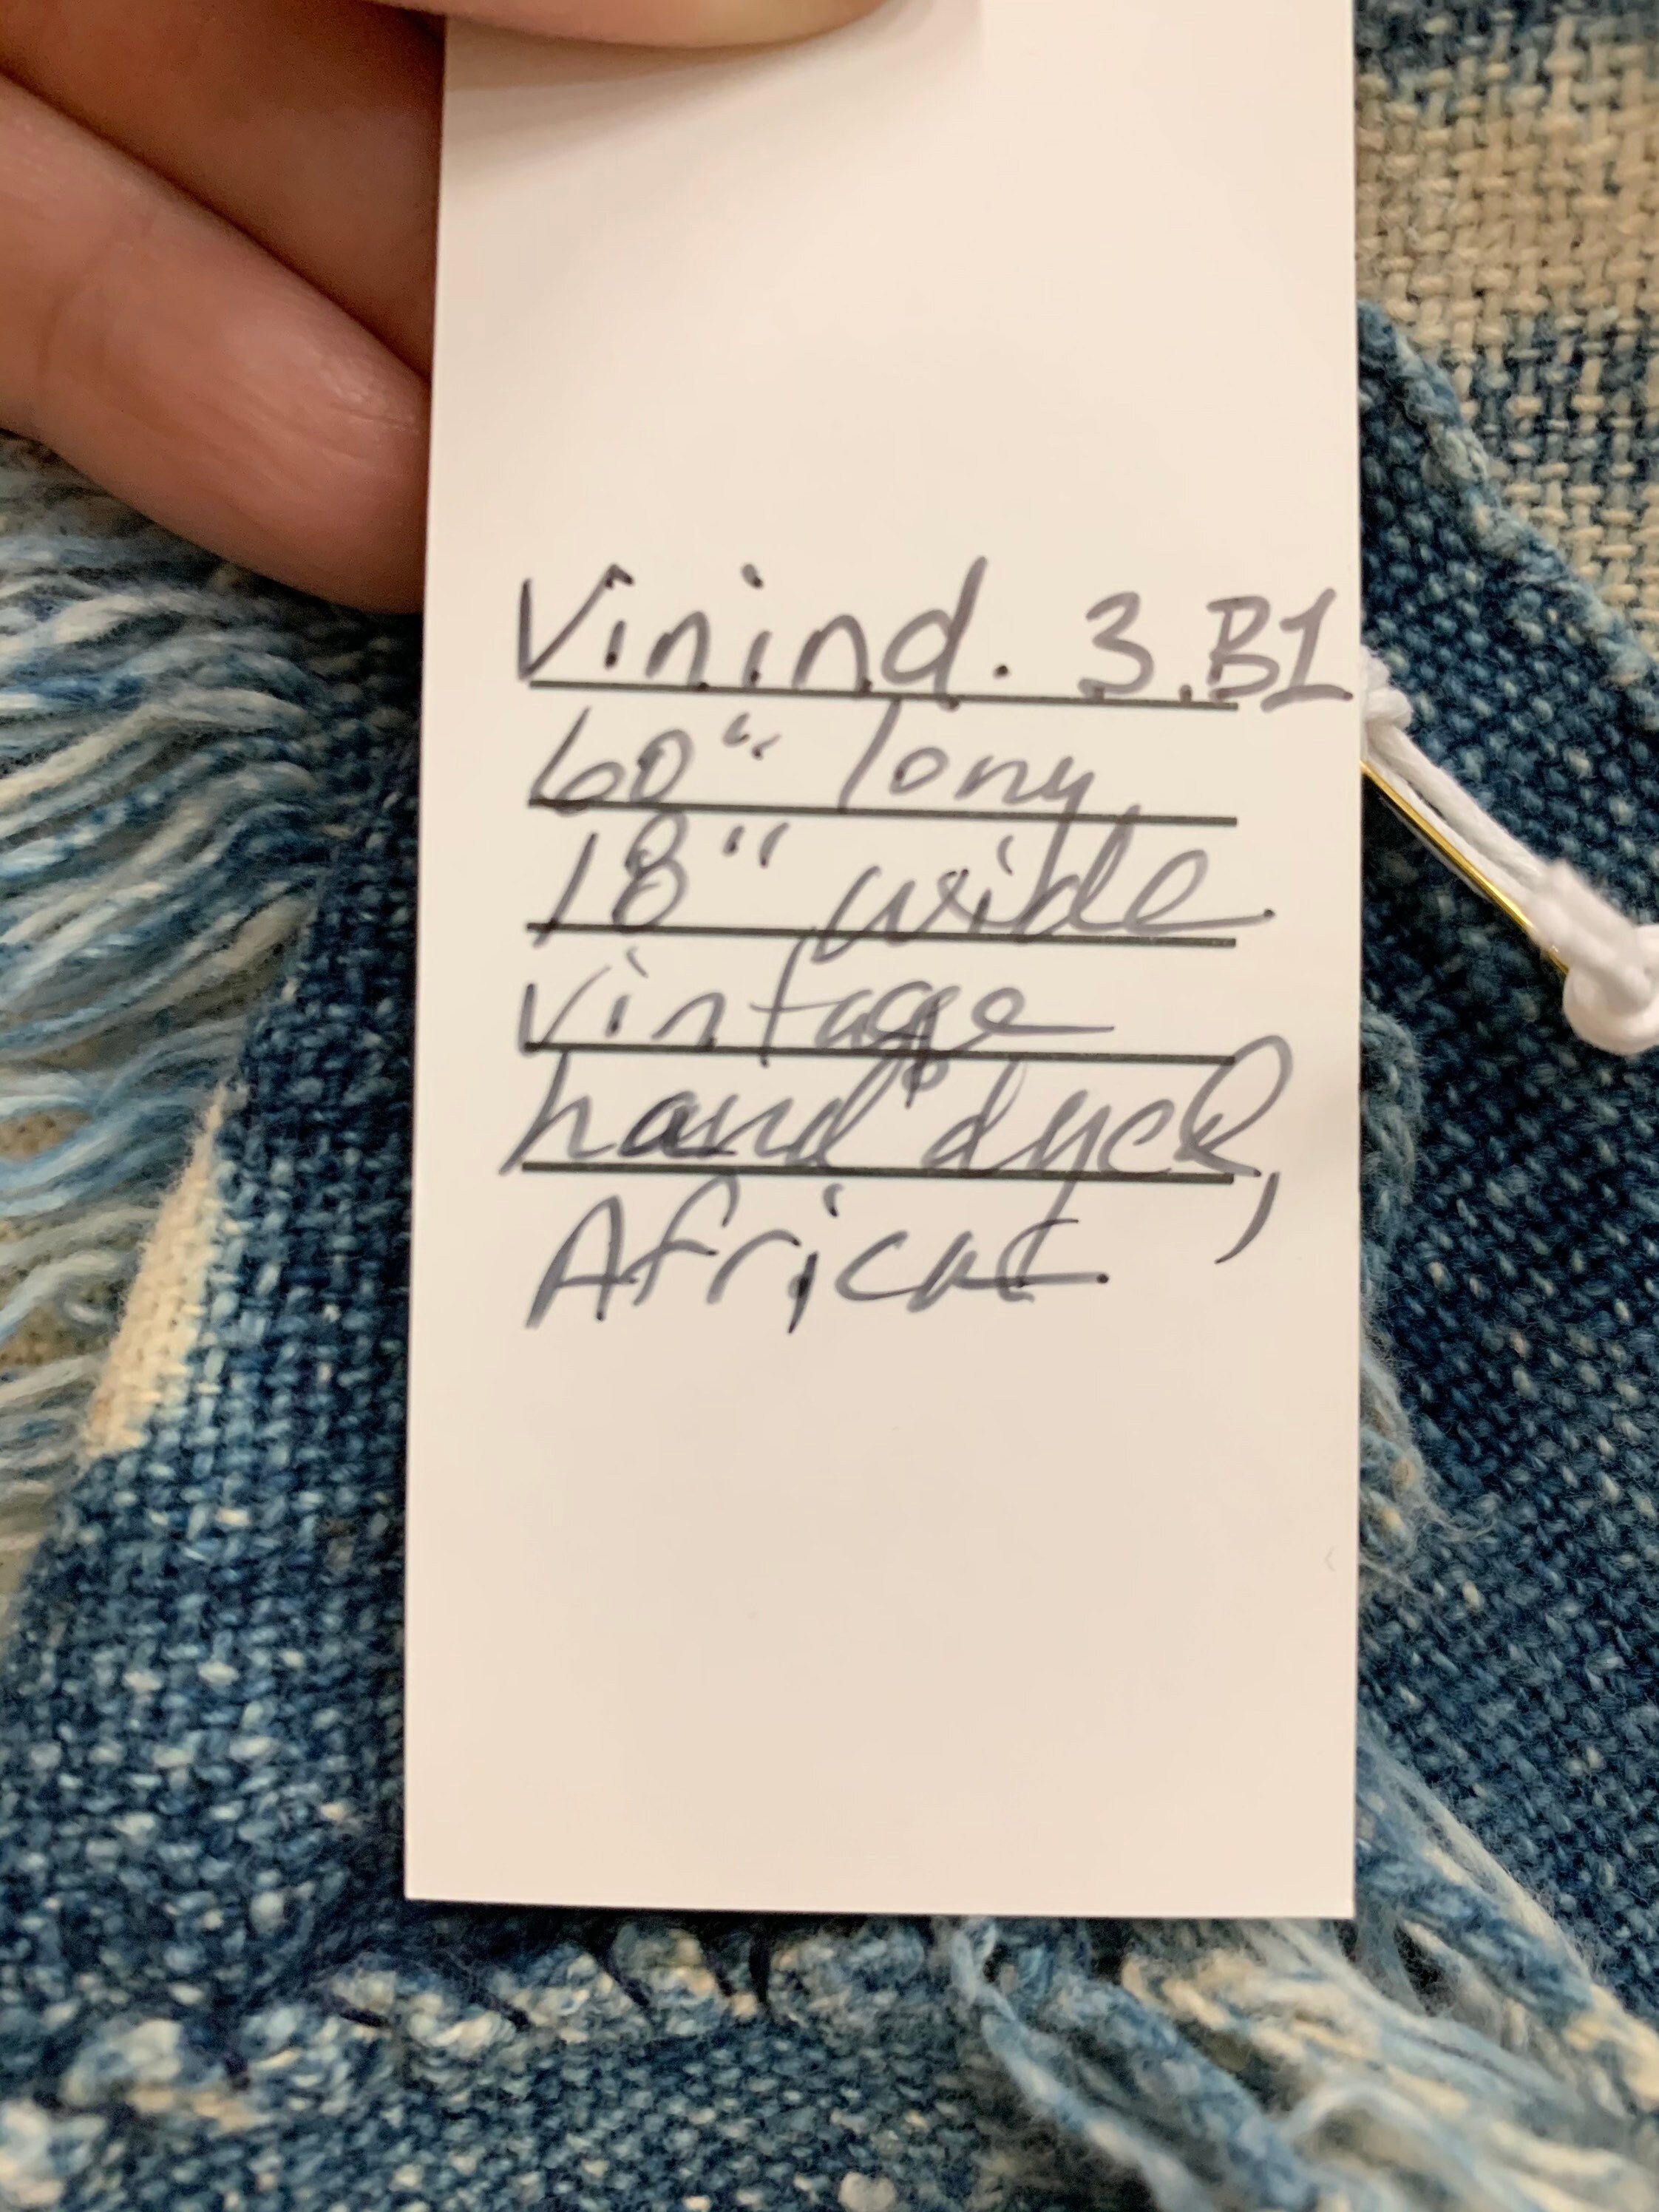 Vinind. 3.B1
60" long,
18" wide
vintage
hand dyed,
African